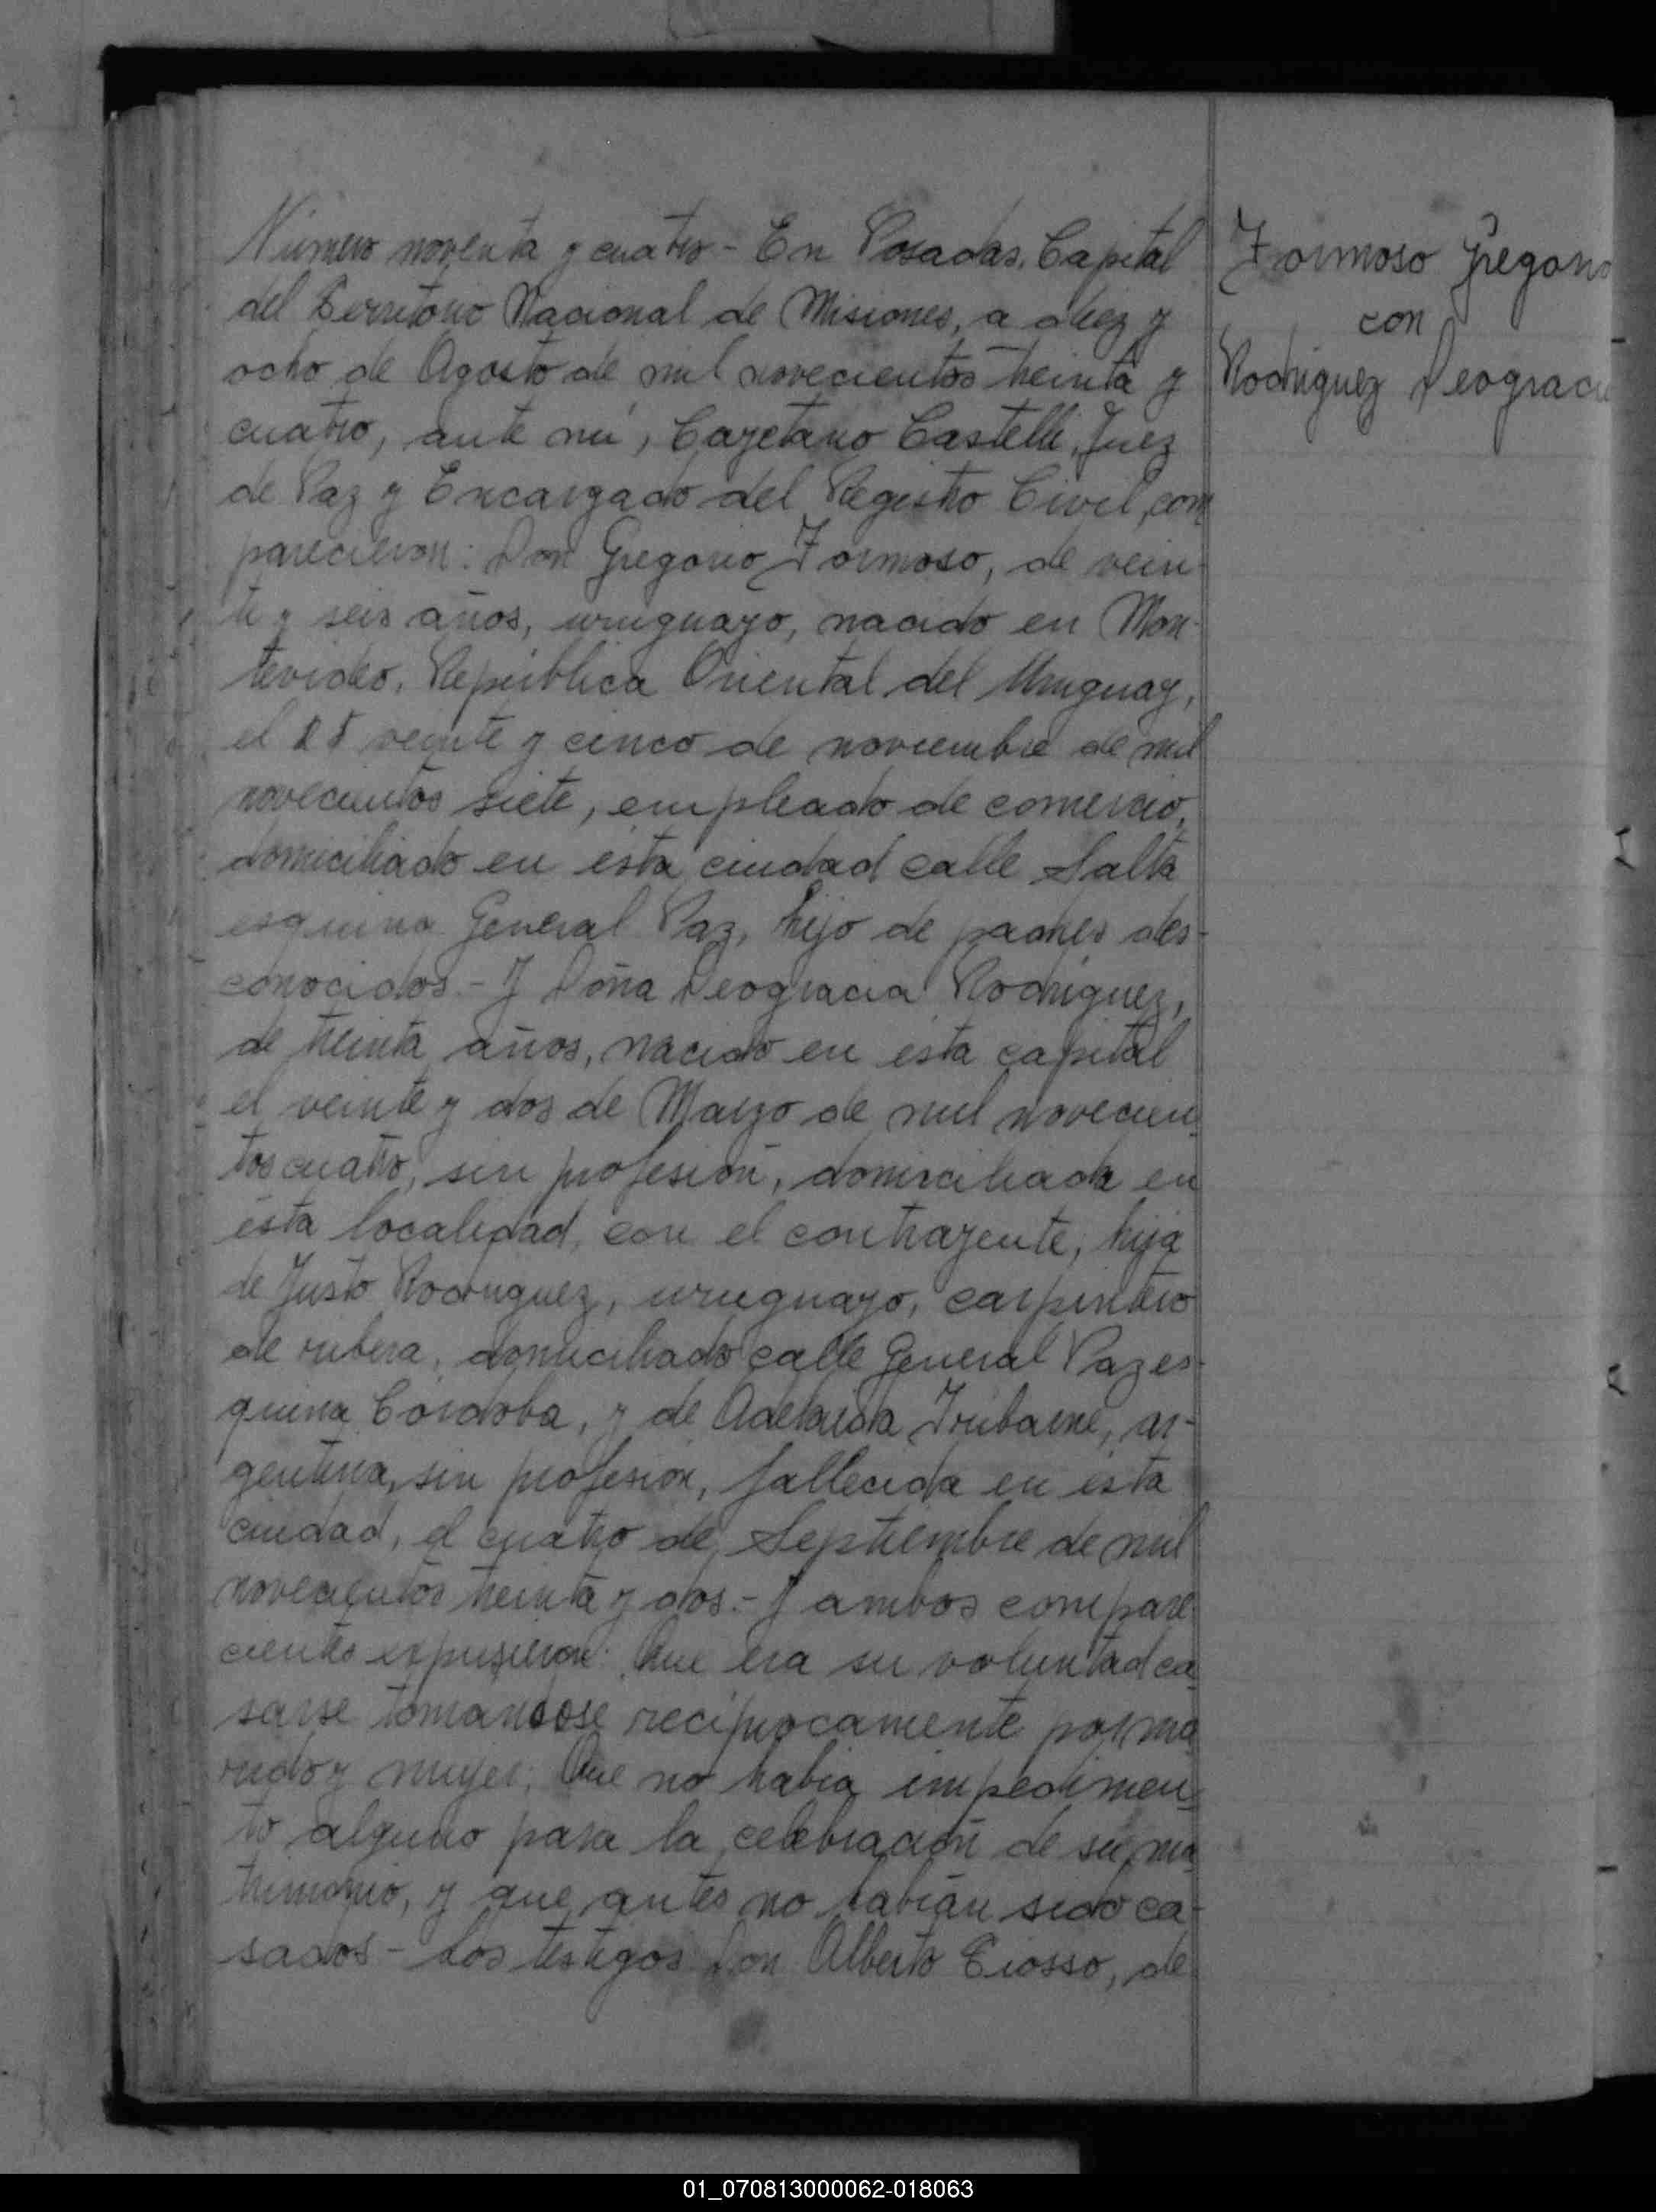 Número noventa y cuatro - En Posadas, Capital
del Territorio Nacional de Misiones, a diez y
ocho de Agosto de mil novecientos treinta y
cuatro, ante mí, Cayetano Castelli, Juez
de Paz y Encargado del Registro Civil, com
parecieron: Don Gregorio Formoso, de vein-
te y seis años, uruguayo, nacido en Mon-
tevideo, República Oriental del Uruguay,
el 25 veinte y cinco de noviembre de mil
novecientos siete, empleado de comercio,
domiciliado en ésta ciudad calle Salta
esquina General Paz, hijo de padres des-
conocidos.- Y Doña Deogracia Rodríguez,
de treinta años, nacido en ésta capital
el veinte y dos de Marzo de mil novecien
tos cuatro, sin profesión, domiciliada en
ésta localidad, con el contrayente, hija
de Justo Rodriguez, uruguayo, carpintero
de ribera, domiciliado calle General Paz es-
quina Córdoba, y de Adelaida Iribarne, ar-
gentina, sin profesión, fallecida en ésta
ciudad, el cuatro de Septiembre de mil
novecientos treinta y dos.- Y ambos compare
cientes expusieron: Que era su voluntad ca
sarse tomandose recíprocamente por ma
rido y mujer; Que no había impedimen
to alguno para la celebración de su ma
trimonio, y que antes no habían sido ca-
sados - Los testigos Don Alberto Tiosso, de
Formoso Gregorio
con
Rodriguez Deograci
01_070813000062-018063